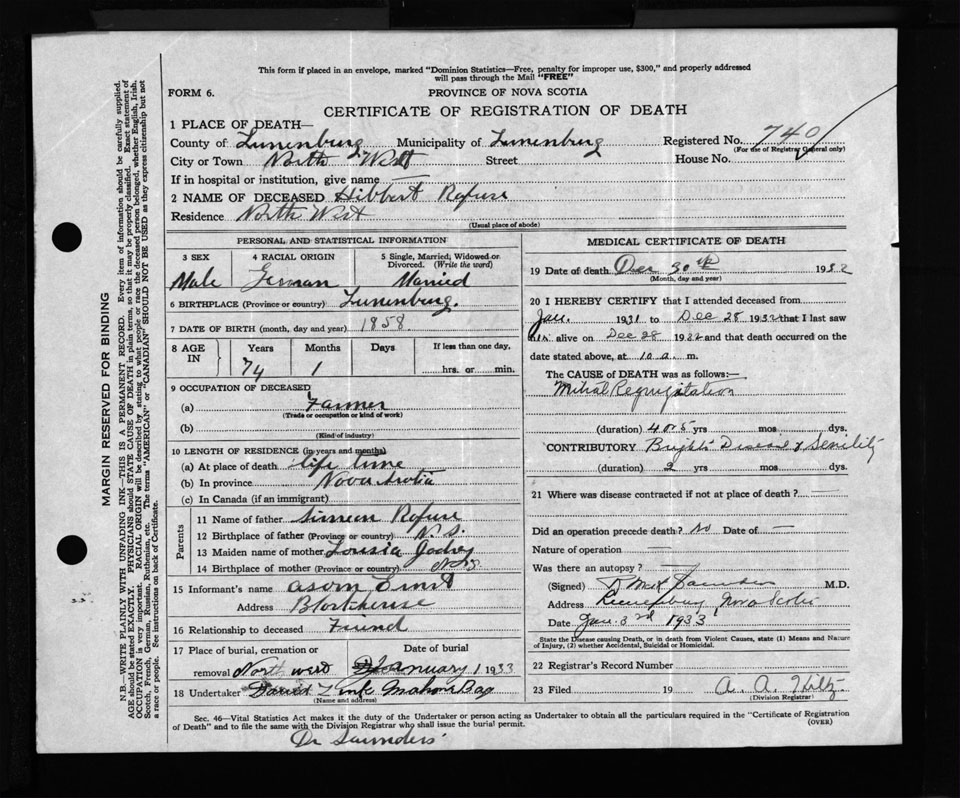 This form if placed in an envelope, marked "Dominion Statistics—Free, penalty for improper use, $300," and properly addressed
will pass through the Mail "FREE"
FORM 6.
PROVINCE OF NOVA SCOTIA
CERTIFICATE OF REGISTRATION OF DEATH
1 PLACE OF DEATH—
County of Lunenburg Municipality of Lunenburg Registered No. 740
(For use of Registrar General only)
City or Town North West Street House No.
If in hospital or institution, give name —
2 NAME OF DECEASED Hibbert Refuse
Residence North West
(Usual place of abode)
PERSONAL AND STATISTICAL INFORMATION
3 SEX 4 RACIAL ORIGIN 5 Single, Married, Widowed or
Divorced. (Write the word)
Male German Married
6 BIRTHPLACE (Province or country) Lunenburg.
7 DATE OF BIRTH (month, day and year) 1858
8 AGE IN Years Months Days If less than one day,
74 1 hrs. or min.
9 OCCUPATION OF DECEASED
(a) Farmer
(Trade or occupation or kind of work)
(b)
(Kind of industry)
10 LENGTH OF RESIDENCE (in years and months)
(a) At place of death life time
(b) In province Nova Scotia
(c) In Canada (if an immigrant)
Parents
11 Name of father Simeon Refuse
12 Birthplace of father (Province or country) N. S.
13 Maiden name of mother Lousia
14 Birthplace of mother (Province or country) N.S.
15 Informant's name Ernst
Address Blockhouse
16 Relationship to deceased Friend
17 Place of burial, cremation or Date of burial
removal North west January 1 1933
18 Undertaker David Zink Mahone Bay
(Name and address)
MEDICAL CERTIFICATE OF DEATH
19 Date of death Dec 30th 1932
(Month, day and year)
20 I HEREBY CERTIFY that I attended deceased from
Jan. 1931 to Dec 28 1932 that I last saw
him alive on Dec 28 1932 and that death occurred on the
date stated above, at 10 a. m.
The CAUSE of DEATH was as follows:—
Mitral Regurgitation
(duration) 4 or 5 yrs mos dys.
CONTRIBUTORY Bright's Disease & Senility
(duration) 2 yrs mos. dys.
21 Where was disease contracted if not at place of death? —
Did an operation precede death? No Date of —
Nature of operation —
Was there an autopsy? —
(Signed) Saunders M.D.
Address Lunenburg Nova Scotia
Date Jan. 3rd 1933
State the Disease causing Death, or in death from Violent Causes, state (1) Means and Nature
of Injury, (2) whether Accidental, Suicidal or Homicidal.
22 Registrar's Record Number
23 Filed 19 A. A. Hiltz.
(Division Registrar)
Sec. 46—Vital Statistics Act makes it the duty of the Undertaker or person acting as Undertaker to obtain all the particulars required in the "Certificate of Registration
of Death" and to file the same with the Division Registrar who shall issue the burial permit.
(OVER)
Dr Saunders
MARGIN RESERVED FOR BINDING
N.B.—WRITE PLAINLY WITH UNFADING INK—THIS IS A PERMANENT RECORD. Every item of information should be carefully supplied.
AGE should be stated EXACTLY. PHYSICIANS should STATE CAUSE OF DEATH in plain terms, so that it may be properly classified. Exact statement of
OCCUPATION is very important. RACIAL ORIGIN will be described by stating to what people or race the deceased person belonged, whether English, Irish,
Scotch, French, German, Russian, Ruthenian, etc. The terms "AMERICAN" or "CANADIAN" SHOULD NOT BE USED as they express citizenship but not
a race or people. See instructions on back of Certificate.